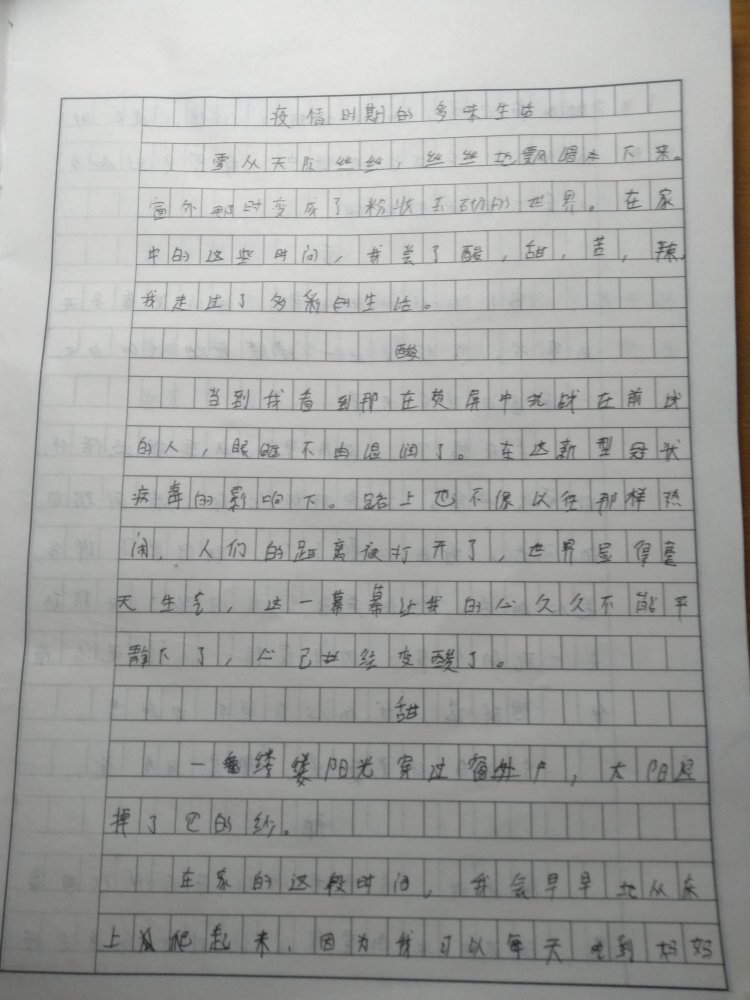 疫情时期的多味生活
雪从天际丝丝,丝丝地飘下来。
窗外那时变成了粉妆玉砌的世界。在家
中的这些时间,我尝了酸,甜,苦,辣,
我走过了多彩的生活。
酸
当到我看到那在荧屏中抗战在前线
的人,眼眶不由湿润了。在这新型冠状
病毒的影响下。路上也不像以往那样热
闹,人们的距离被打开了,世界显得毫
无生气,这一幕幕让我的心久久不能平
静下了,心已经变酸了。
甜
一缕缕阳光穿过窗户,太阳
掉了它的纱。
在家的这段时间,我会早早地从床
上爬起来,因为我可以每天吃到妈妈